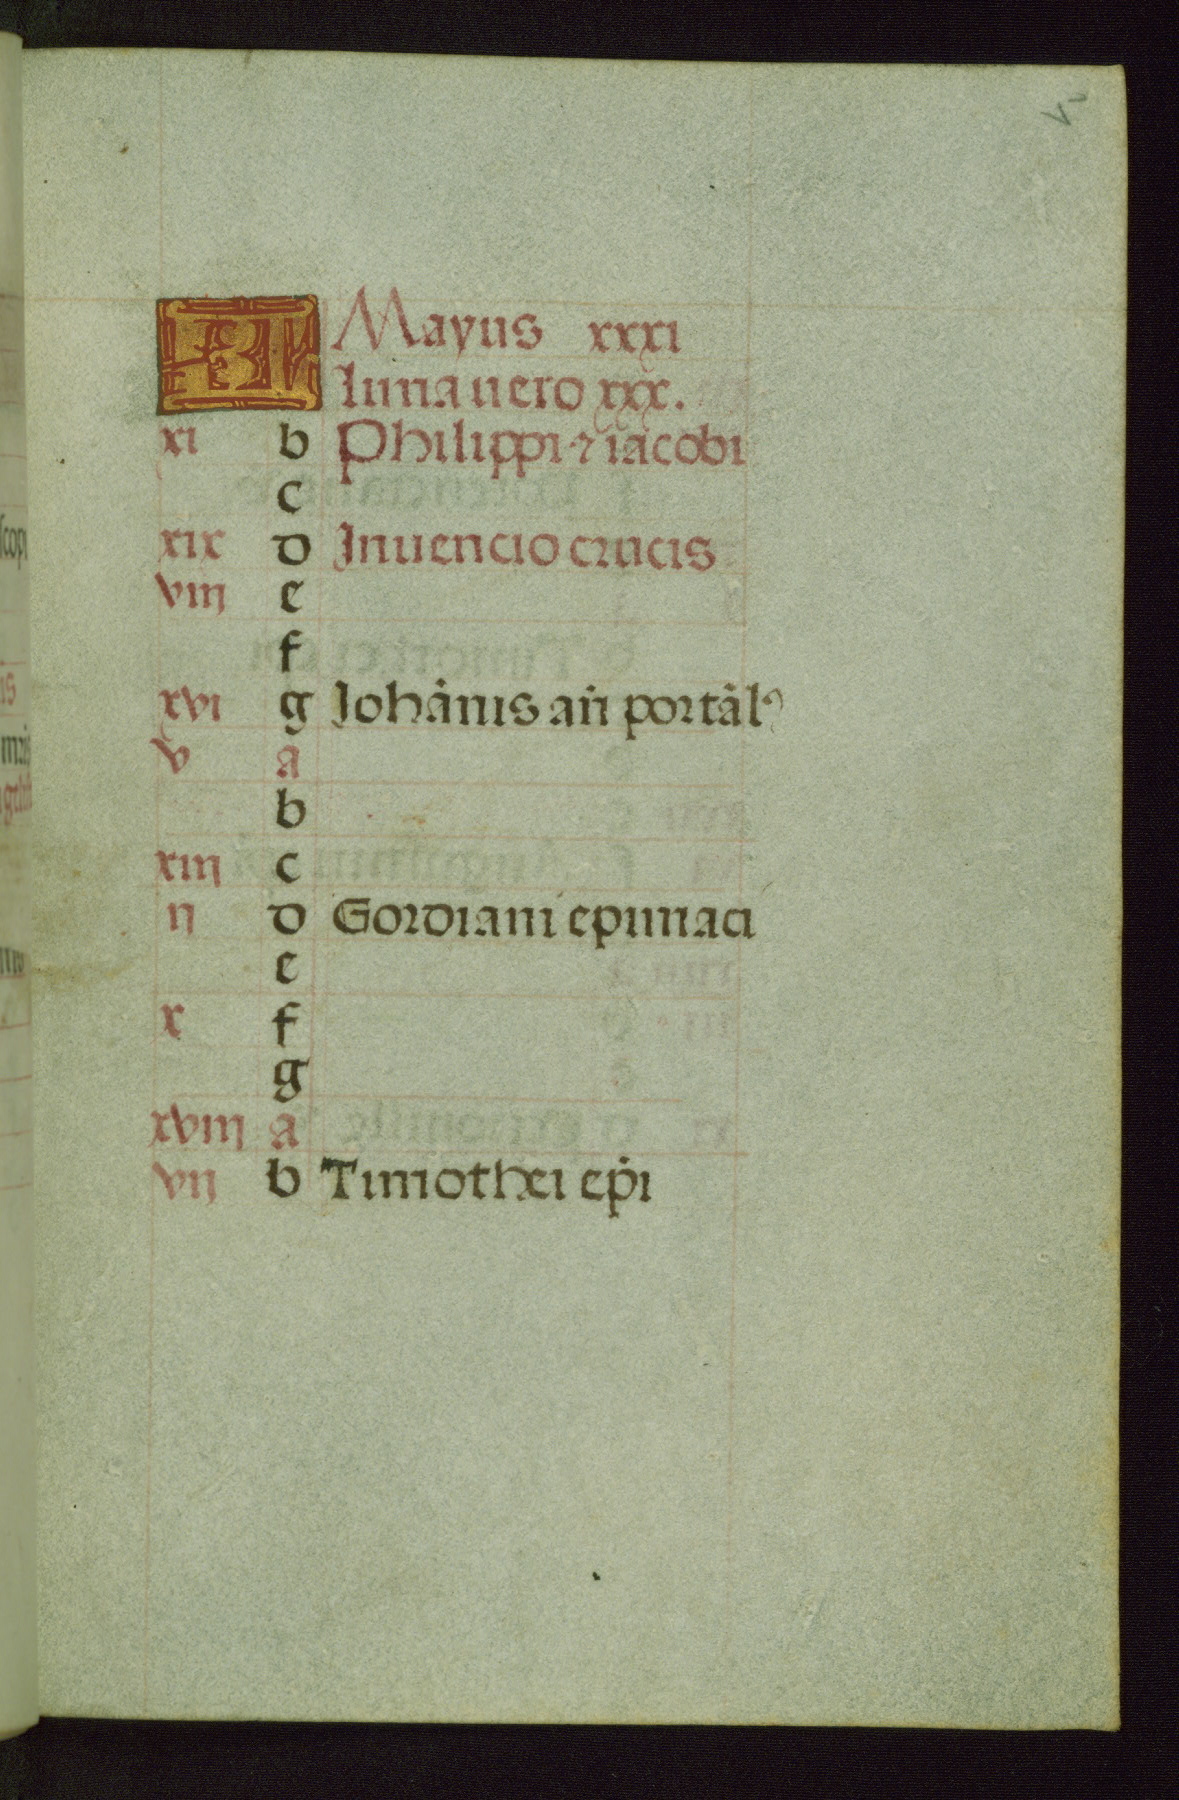 KL Mayus xxxi
luna uero xxx.
xi b Philippi ⁊ iacobi
c
xix d Inuencio crucis
viij e
f
xvi g Iohãnis añ portãl
v a
b
xiij c
ij d Gordiani epimaci
e
x f
g
xviij a
vij b Timothei ep̃i